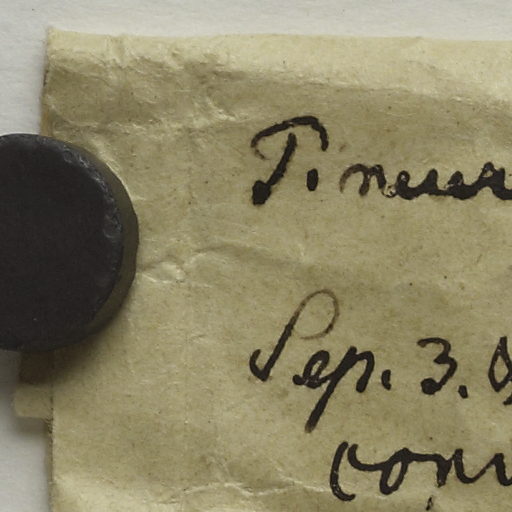 T. neur
Sep. 3.
con